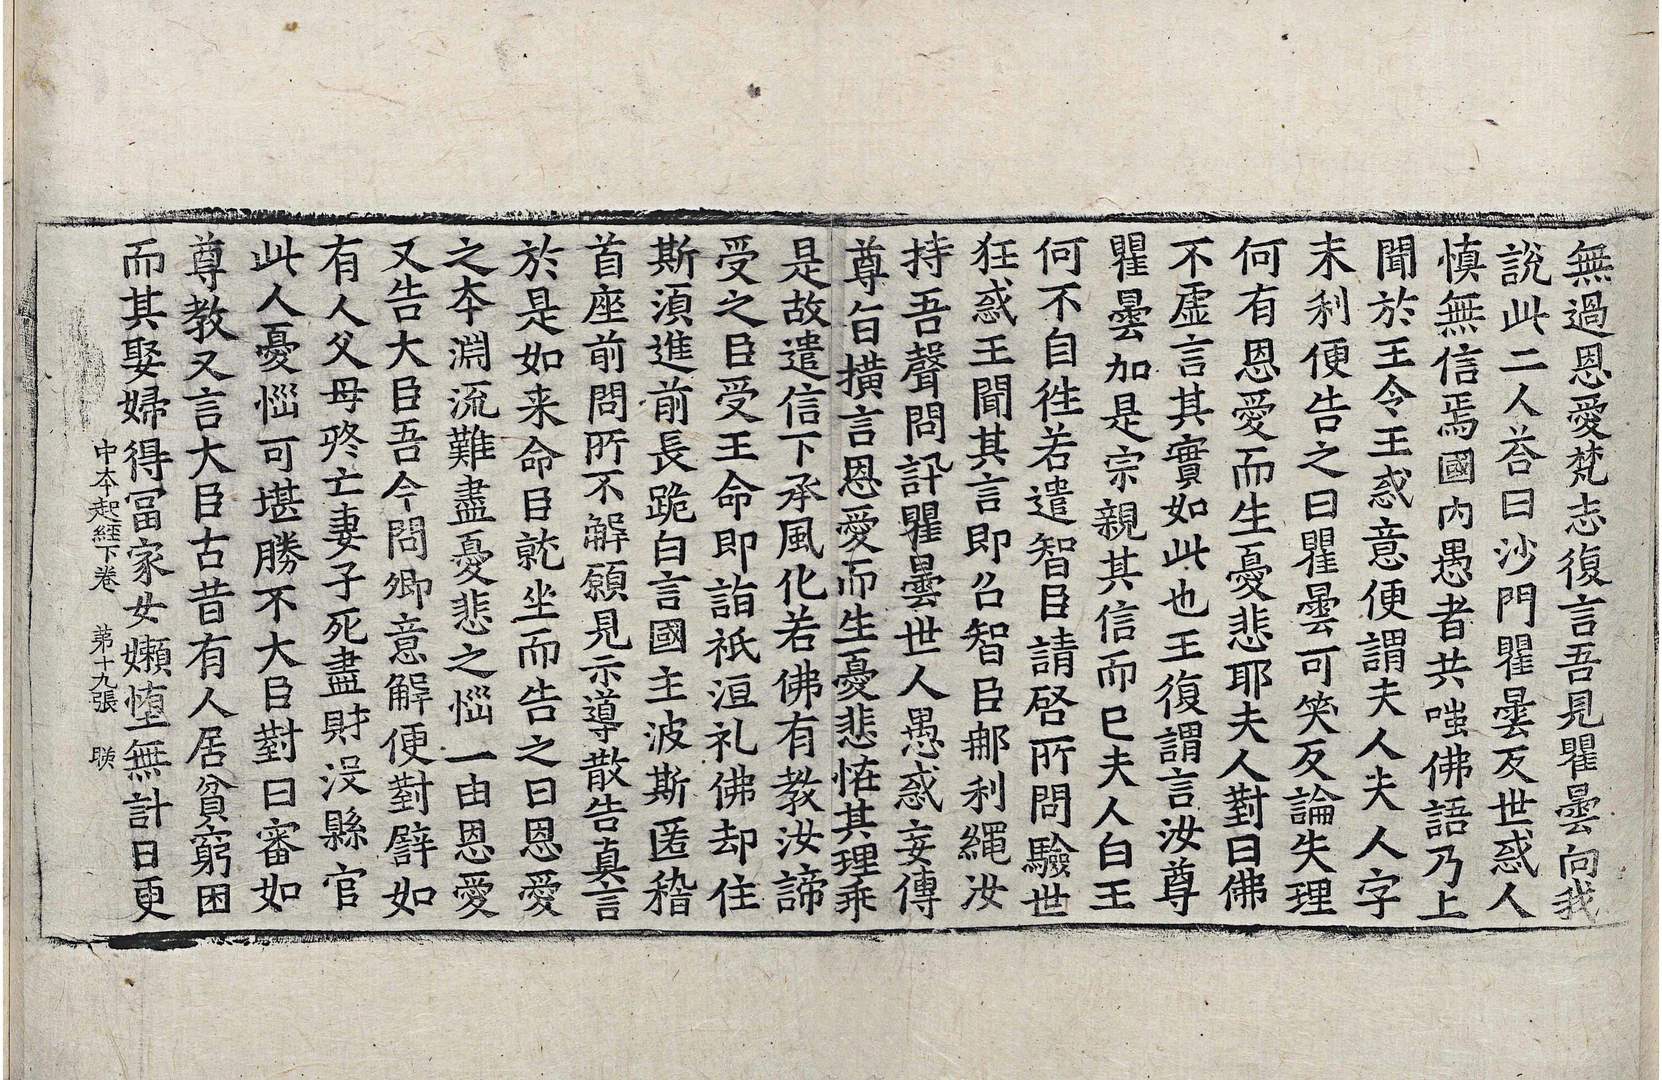 無過恩愛梵志復言吾見瞿曇向我
說此二人荅曰沙門瞿曇反世惑人
慎無信焉國內愚者共嗤佛語乃上
聞於王令王惑意便謂夫人夫人字
末利便告之曰瞿曇可笑反論失理
何有恩愛而生憂悲耶夫人對曰佛
不虛言其實如此也王復謂言汝尊
瞿曇加是宗親其信而已夫人白王
何不自徃若遣智臣請啓所問驗世
狂惑王聞其言即召智臣𨚗利繩汝
持吾聲問訊瞿曇世人愚惑妄傳
尊旨橫言恩愛而生憂悲恠其理乖
是故遣信下承風化若佛有教汝諦
受之臣受王命即詣祇洹礼佛却住
斯湏進前長跪白言國主波斯匿稽
首座前問所不解願見示導散告真言
於是如来命臣就坐而告之曰恩愛
之夲淵流難盡憂悲之惱一由恩愛
又告大臣吾今問卿意解便對譬如
有人父母終亡妻子死盡財没縣官
此人憂惱可堪勝不大臣對曰審如
尊教又言大臣古昔有人居貧窮困
而其娶婦得冨家女嬾墮無計日更
中夲起經下卷 第十九張 𣅿